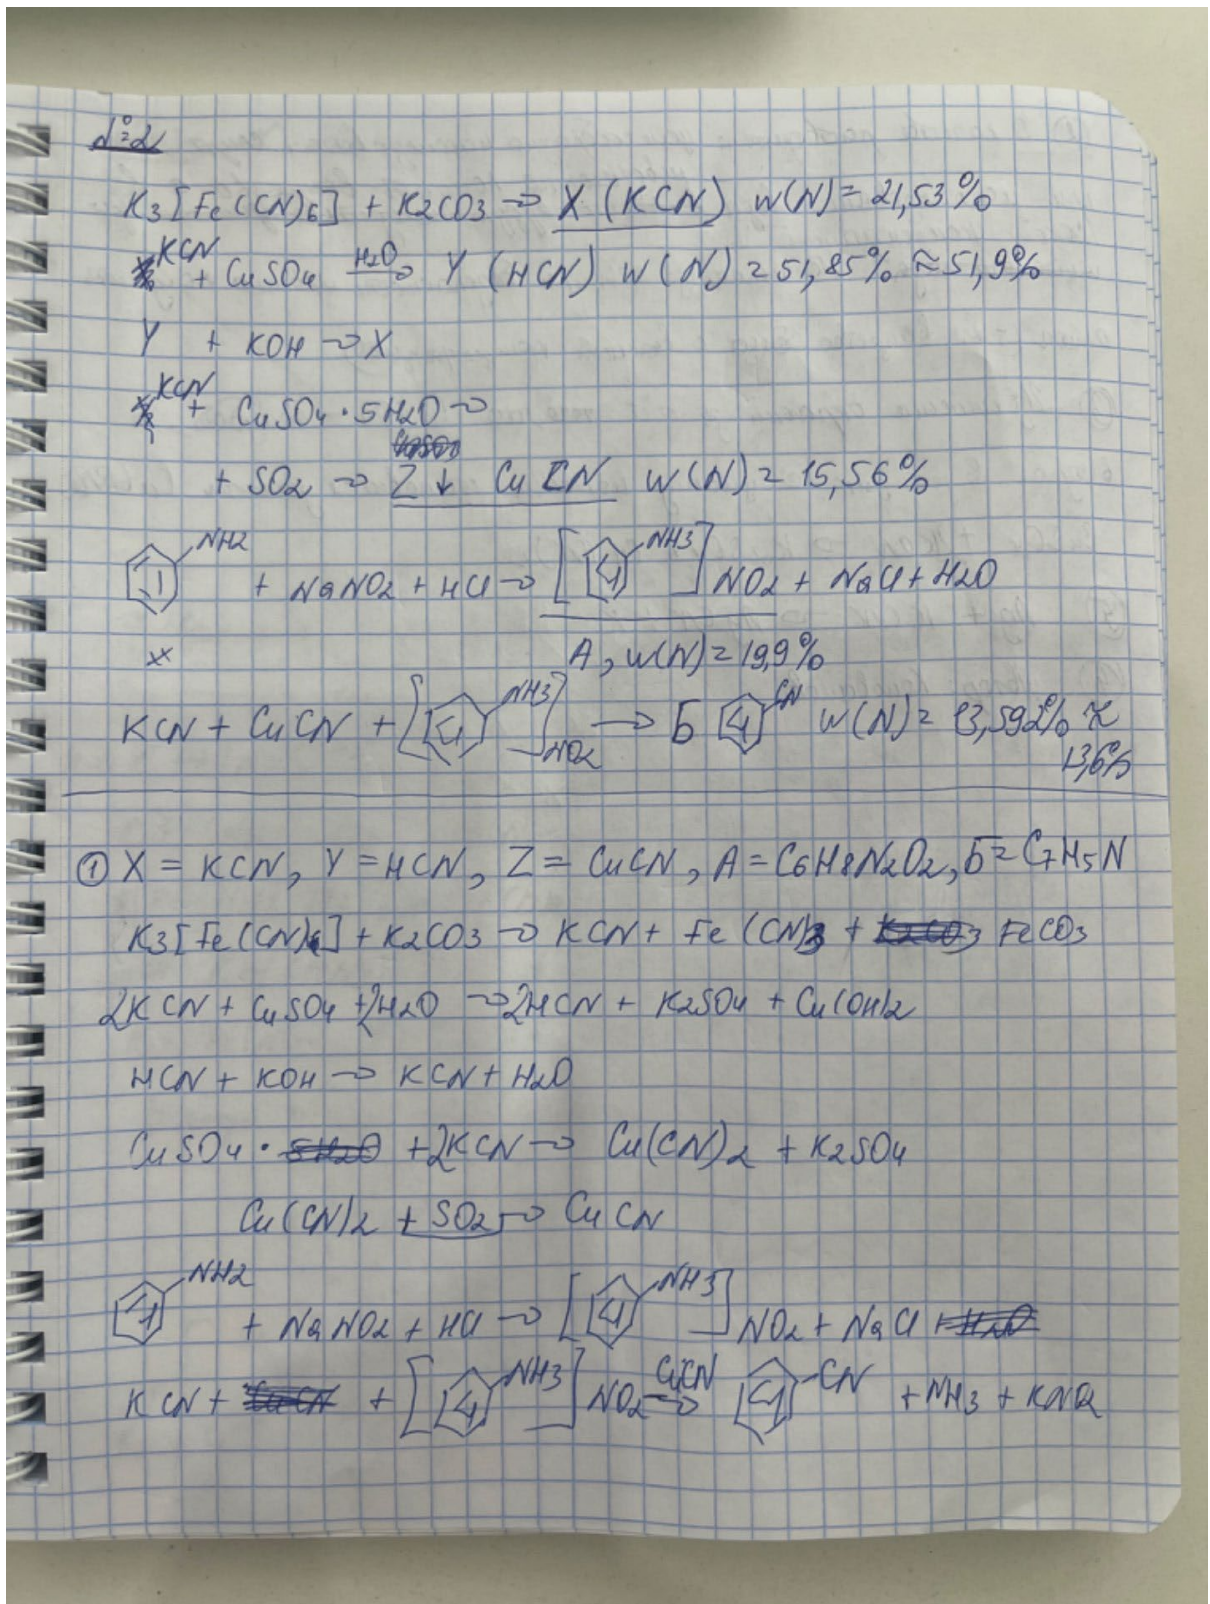 №2
K3[Fe(CN)6] + K2CO3 → X (KCN) W(N) = 21,53%
KCN + CuSO4 H2O→ Y (HCN) W(N) = 51,85% ≈ 51,9%
Y + KOH → X
KCN + CuSO4 · 5H2O →
+ SO2 → Z ↓ CuCN W(N) = 15,56%
NH2 + NaNO2 + HCl → [NH3] NO2 + NaCl + H2O
A, W(N) = 19,9%
KCN + CuCN + [NH3] NO2 → Б CN W(N) = 13,592%
13,6%
① X = KCN, Y = HCN, Z = CuCN, A = C6H8N2O2, Б = C7H5N
K3[Fe(CN)6] + K2CO3 → KCN + Fe(CN)3 + FeCO3
2KCN + CuSO4 + 2H2O → 2HCN + K2SO4 + Cu(OH)2
HCN + KOH → KCN + H2O
CuSO4 · + 2KCN → Cu(CN)2 + K2SO4
Cu(CN)2 + SO2 → CuCN
NH2 + NaNO2 + HCl → [NH3] NO2 + NaCl
KCN + + [NH3] NO2 CuCN→ CN + NH3 + KNO2